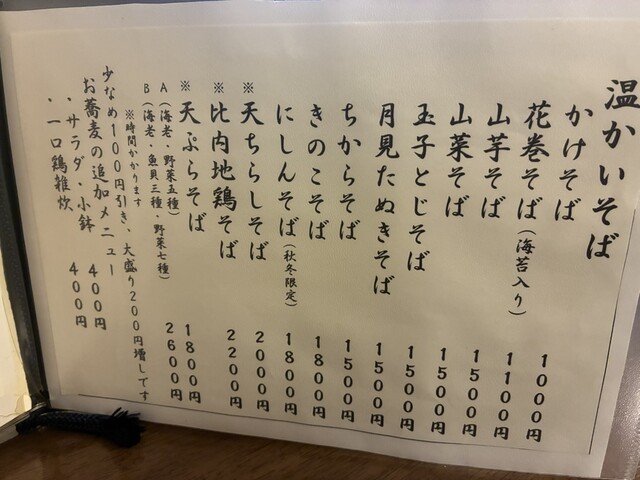 温かいそば
かけそば 1000円
花巻そば(海苔入り) 1100円
山芋そば 1500円
山菜そば 1500円
玉子とじそば 1500円
月見たぬきそば 1500円
ちからそば 1500円
きのこそば 1800円
にしんそば(秋冬限定) 1800円
※天ちらしそば 2000円
※比内地鶏そば 2200円
※天ぷらそば
A(海老・野菜五種) 1800円
B(海老・魚貝三種・野菜七種) 2600円
※時間かかります
少なめ100円引き、大盛り200円増しです
お蕎麦の追加メニュー
・サラダ・小鉢 400円
・一口鶏雑炊 400円